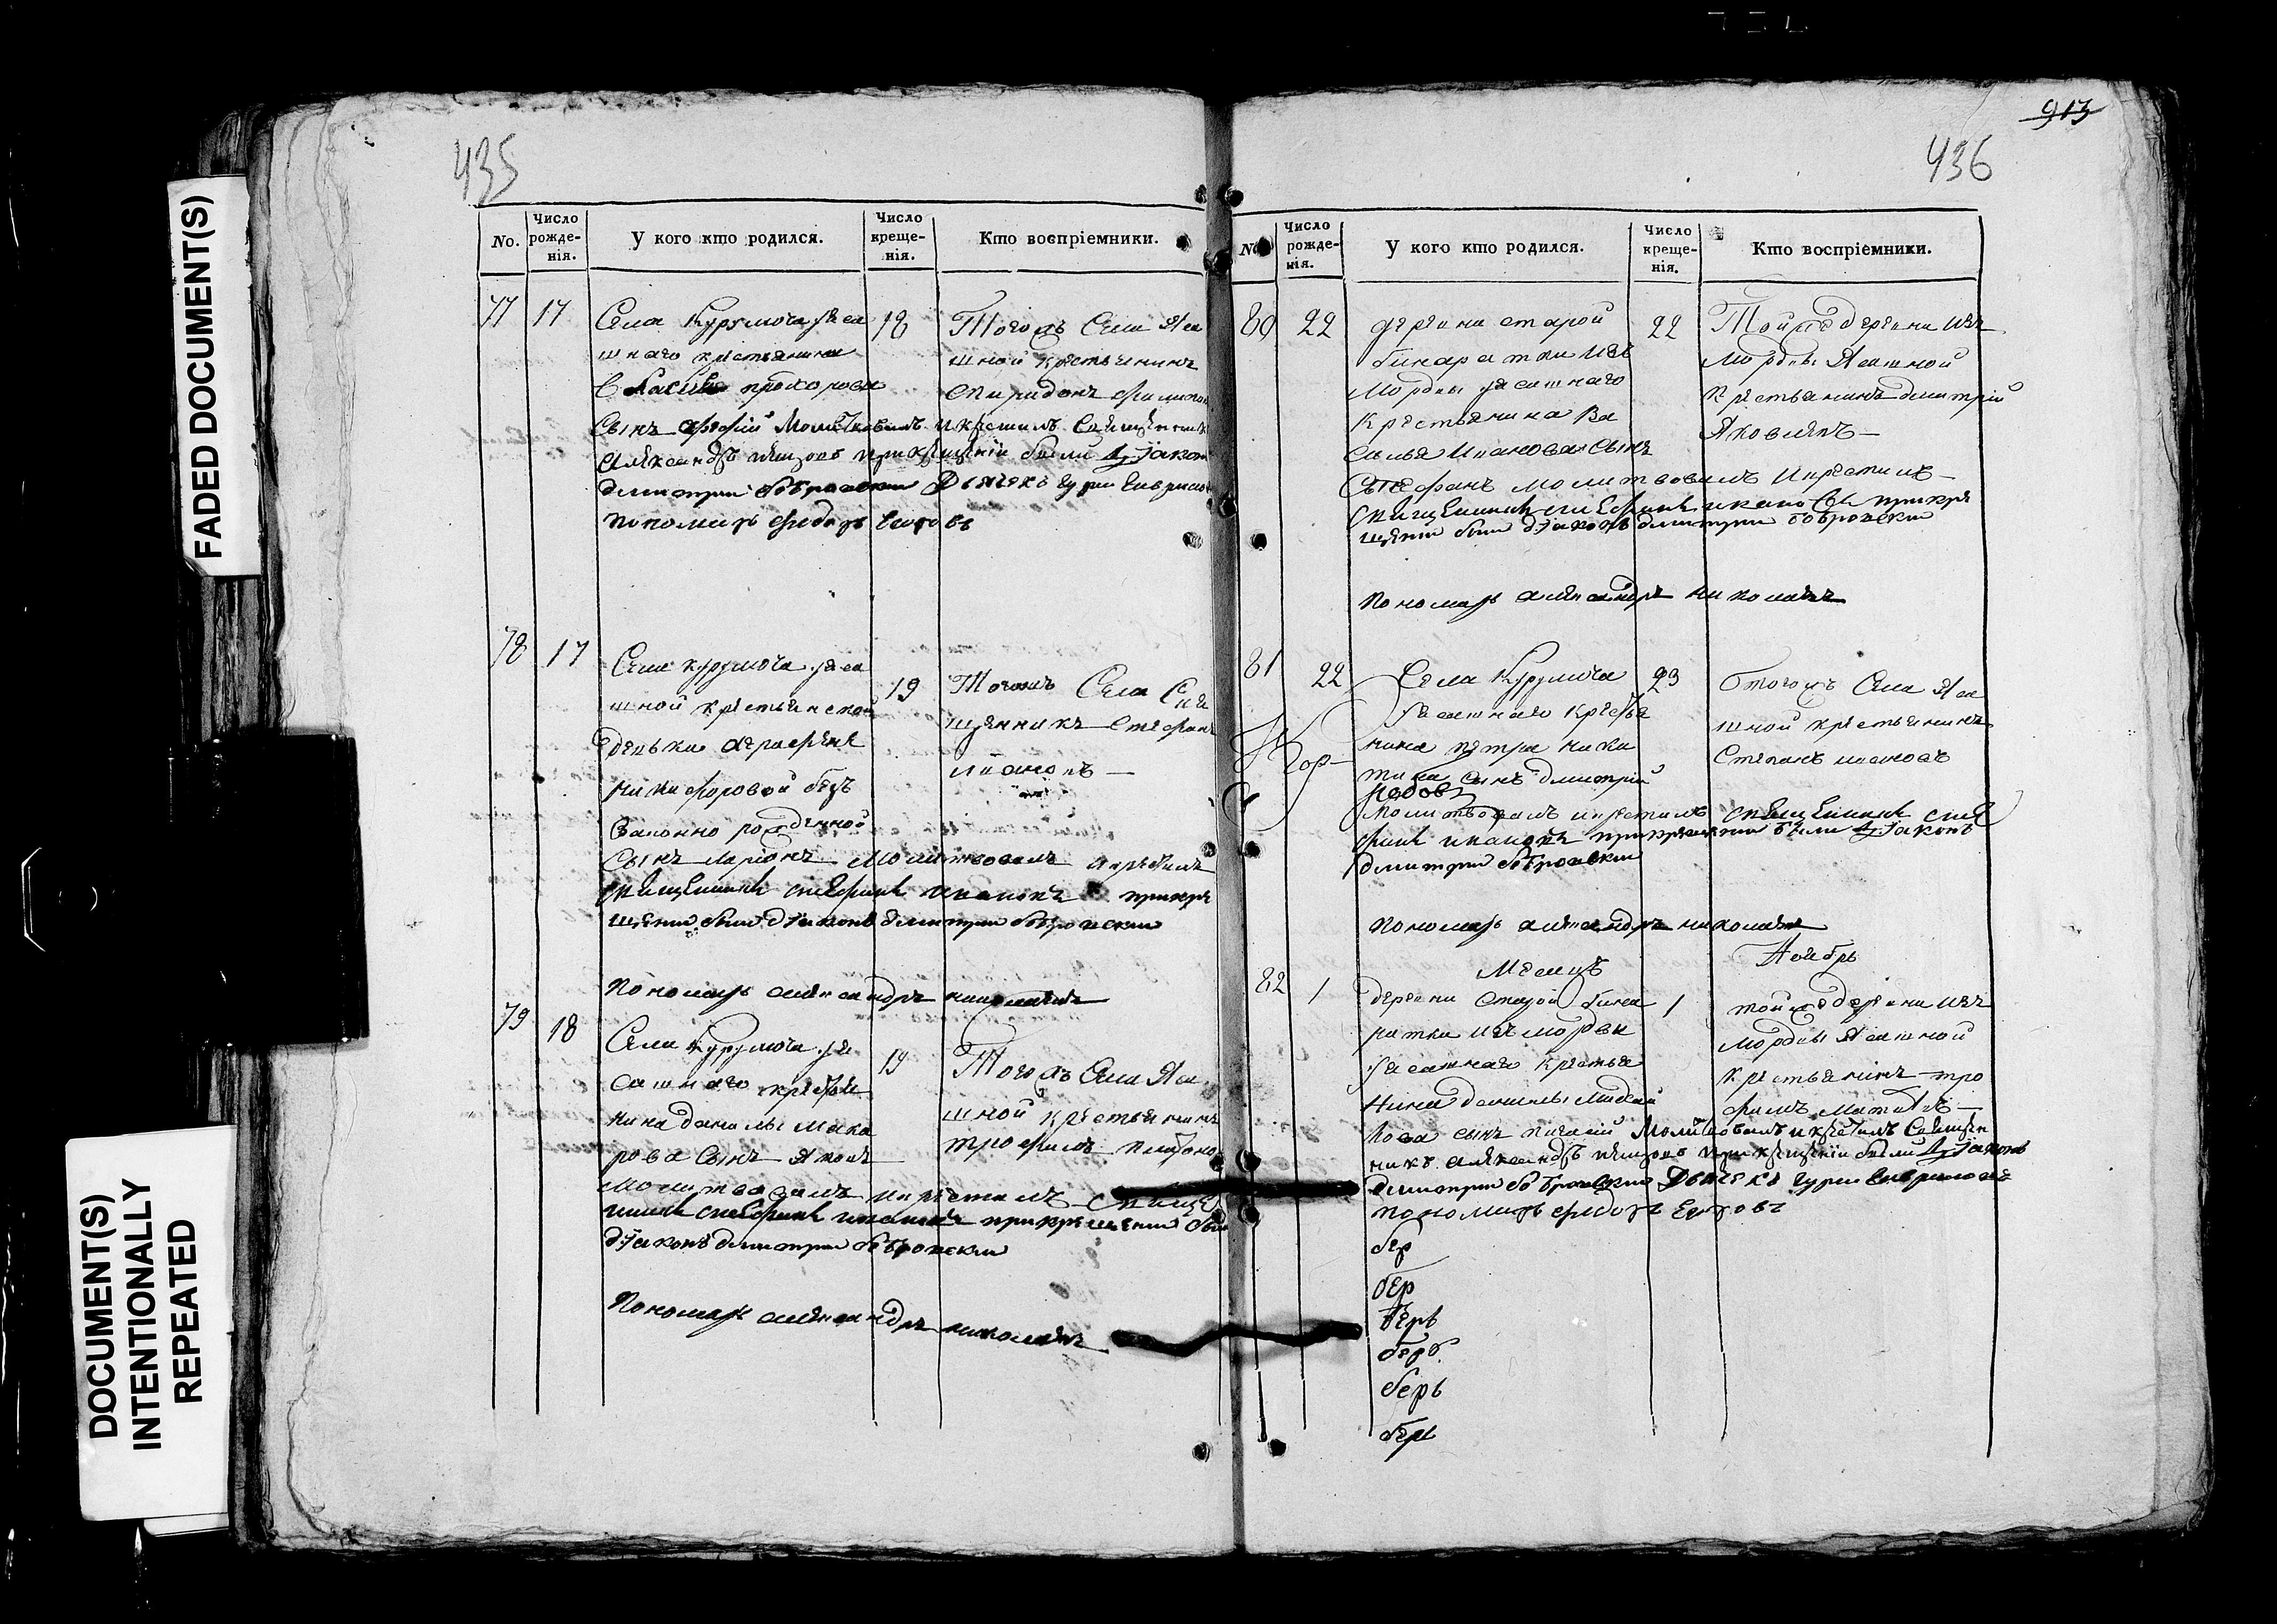 FADED DOCUMENT(S)
DOCUMENT(S)
INTENTIONALLY
REPEATED
435
No.
Число рожденія.
У кого кто родился.
Число крещенія.
Кто воспріемники.
77 17
Села Курумоча Яса
шнаго крестьянина
прохорова
Сынъ
Александръ
димитрий бобровский Дьячекъ гурий
пономарь Федоръ
18
Тогожъ Села Яса
шной крестьянинъ
спиридонъ филипов
78 17
Села курумоча яса
шной крестьянской
девьки аграфене
никифоровой безъ
законно рожденной
Сынъ ларионъ Молитвовалъ и крестилъ
священникъ стефанъ ивановъ прикре
щении были диаконъ димитрии бобровскии
пономарь александръ николаевъ
19
Тогожъ Села Свя
щенникъ Стефанъ
ивановъ
79 18
Села Курумоча Яса
сашнаго крестья
нина данилы мака
рова Сынъ Яковъ
молитвовалъ и крестилъ свяще
нникъ стефанъ ивановъ прикрещении были
диаконъ димитрии бобровскии
пономарь александръ николаевъ
19
Тогожъ Села Яса
шной крестьянинъ
трофимъ
913
436
No.
Число рожденія.
У кого кто родился.
Число крещенія.
Кто воспріемники.
80 22
деревни старой
бинаратки изъ
Мордвы ясашнаго
Крестьянина Ва
силья Иванова Сынъ
Стефанъ молитвовалъ и крестилъ
священникъ стефанъ ивановъ прикре
щении были диаконъ димитрии бобровскии
пономарь александръ николаевъ
22
Тойже деревни изъ
Мордвы Ясашной
крестьянинъ димитрий
Яковлевъ
81 22
Села Курумоча
Ясашнаго крестья
нина петра ники
тина сынъ димитрий
молитвовалъ и крестилъ священникъ сте
фанъ ивановъ прикрещении были диаконъ
димитрии бобровскии
пономарь александръ николаевъ
23
Тогожъ Села Яса
шной крестьянинъ
Степанъ ивановъ
Месецъ Ноябрь
82 1
деревни Старой бина
ратки изъ мордвы
Ясашнаго Крестья
нина данилы
сынъ
Молитвовалъ и крестилъ Священ
никъ александръ
димитрии бобровскии Дьячекъ гурии
пономарь федоръ
1
тойже деревни изъ
мордвы Ясашной
крестьянинъ тро
фимъ матвеевъ
бер
бер
берь
берб
берь
берь